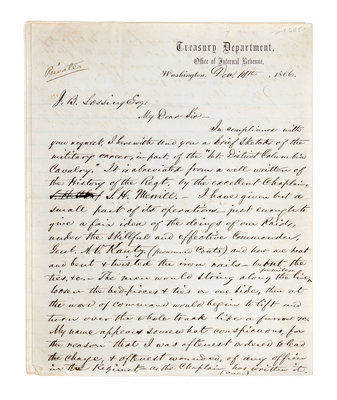 Treasury Department,
Office of Internal Revenue,
Private
Washington, Dec 14th, 1866.
J. B. Lossing Esq:
My Dear Sir
In compliance with
your request, I herewith send you a brief sketch of the
military career, in part, of the "1st District Columbia
Cavalry." It is abreviated from a well written
History of the Regt, by the excellent Chaplain,
S. H. Merrill. - I have given but a
small part of its operations - just enough to
give a fair idea of the doings of our Raids,
under the skillful and effective Commander,
Genl. A. V. Kautz (pronounce) and how we heat
and bent & twisted the iron rails - burnt the
ties, &c. The men would string along the line,
loosen the &  ties on one side, then at
the word of command would begin to lift and
turn over the whole track like a furrow &c
My name appears somewhat conspicuous, for
the reason that I was oftenest ordered to lead
the charge, & oftenest wounded, of any officer
in the Regiment - as the Chaplain has written it